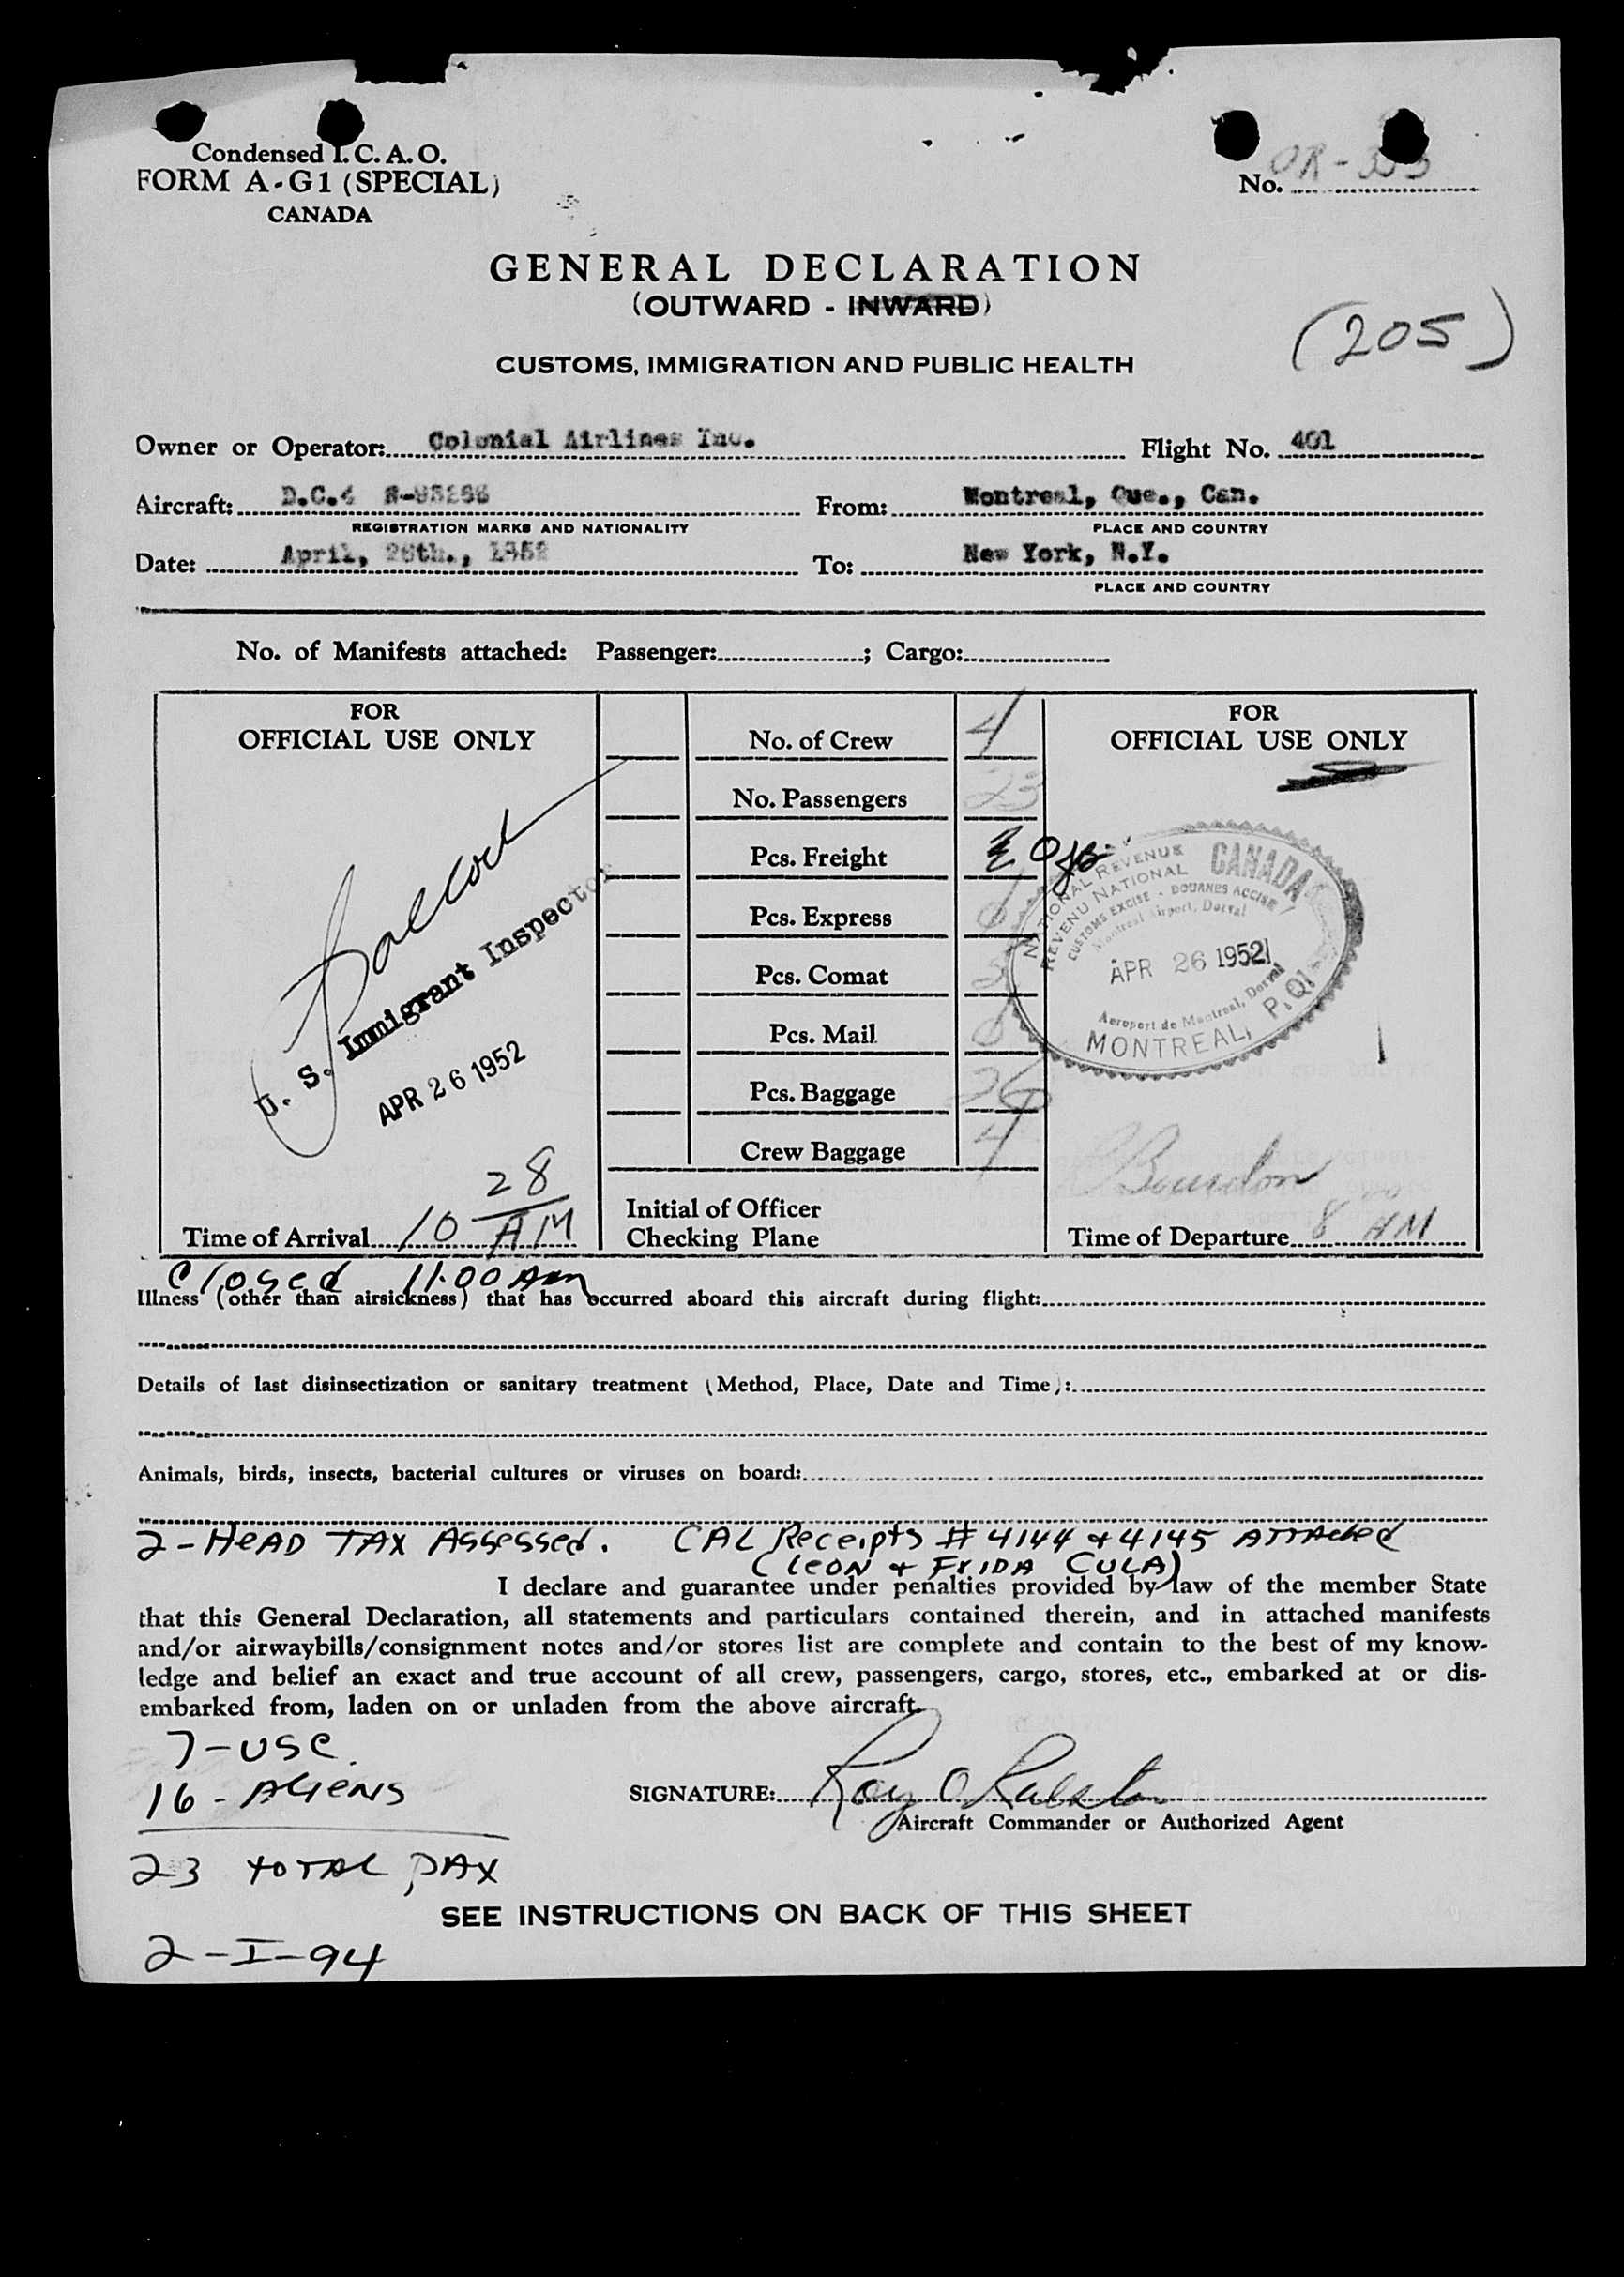 Condensed I. C. A. O.
FORM A-G1 (SPECIAL)
CANADA
No. OR-
GENERAL DECLARATION
(OUTWARD - INWARD)
(205)
CUSTOMS, IMMIGRATION AND PUBLIC HEALTH
Owner or Operator: Colonial Airlines Inc. Flight No. 401
Aircraft: D.C.4 From: Montreal, Que., Can.
REGISTRATION MARKS AND NATIONALITY PLACE AND COUNTRY
Date: April, 26th., 1952 To: New York, N.Y.
PLACE AND COUNTRY
No. of Manifests attached: Passenger: ; Cargo:
FOR
OFFICIAL USE ONLY
U. S. Immigrant Inspector
APR 26 1952
28
Time of Arrival 10 AM
No. of Crew 4
No. Passengers 23
Pcs. Freight
Pcs. Express
Pcs. Comat
Pcs. Mail 0
Pcs. Baggage 26
Crew Baggage 4
Initial of Officer
Checking Plane
FOR
OFFICIAL USE ONLY
NATIONAL REVENUE CANADA
REVENU NATIONAL
CUSTOMS EXCISE - DOUANES ACCISE
Montreal Airport, Dorval
APR 26 1952
Aeroport de Montreal, Dorval
MONTREAL, P.Q.
Bourdon
Time of Departure 8 00 AM
Closed 11:00 Am
Illness (other than airsickness) that has occurred aboard this aircraft during flight:
Details of last disinsectization or sanitary treatment (Method, Place, Date and Time):
Animals, birds, insects, bacterial cultures or viruses on board:
2-HEAD TAX Assessed. CAL Receipts # 4144 & 4145 ATTAched
(LEON & FrIDA CULA)
I declare and guarantee under penalties provided by law of the member State
that this General Declaration, all statements and particulars contained therein, and in attached manifests
and/or airwaybills/consignment notes and/or stores list are complete and contain to the best of my know-
ledge and belief an exact and true account of all crew, passengers, cargo, stores, etc., embarked at or dis-
embarked from, laden on or unladen from the above aircraft.
7-USC
16-ALIENS
SIGNATURE: Roy O Ralston
Aircraft Commander or Authorized Agent
23 TOTAL PAX
SEE INSTRUCTIONS ON BACK OF THIS SHEET
2-I-94